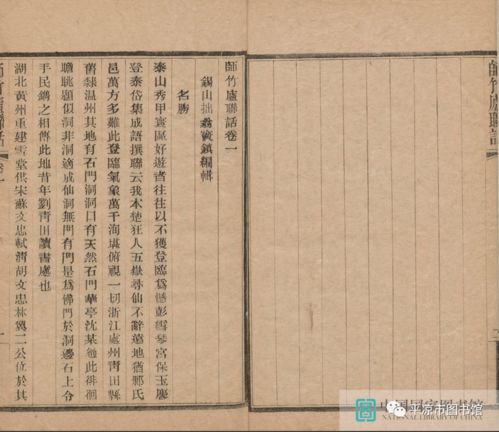 師竹廬聯話卷一
錫山拙翁竇鎮編輯
名勝
泰山秀甲寰區好遊者往往以不獲登臨爲憾彭雪琴宮保玉麐
登泰岱集成語撰聯云我本楚狂人五嶽尋仙不辭遠地猶鄹氏
邑萬方多難此登臨氣象萬千洵堪俯視一切浙江處州青田縣
舊隸温州其地有石門洞洞口有天然石門華亭沈某過此徘徊
瞻眺題似洞非洞適成仙洞無門有門是爲佛門於洞邊石上令
手民鐫之相傳此地昔年劉青田讀書處也
湖北黃州重建雪堂供宋蘇文忠軾清胡文忠林翼二公位於其
師竹廬聯話
卷一
一
師竹廬聯話
中国国家图书馆
NATIONAL LIBRARY OF CHINA
平凉市图书馆